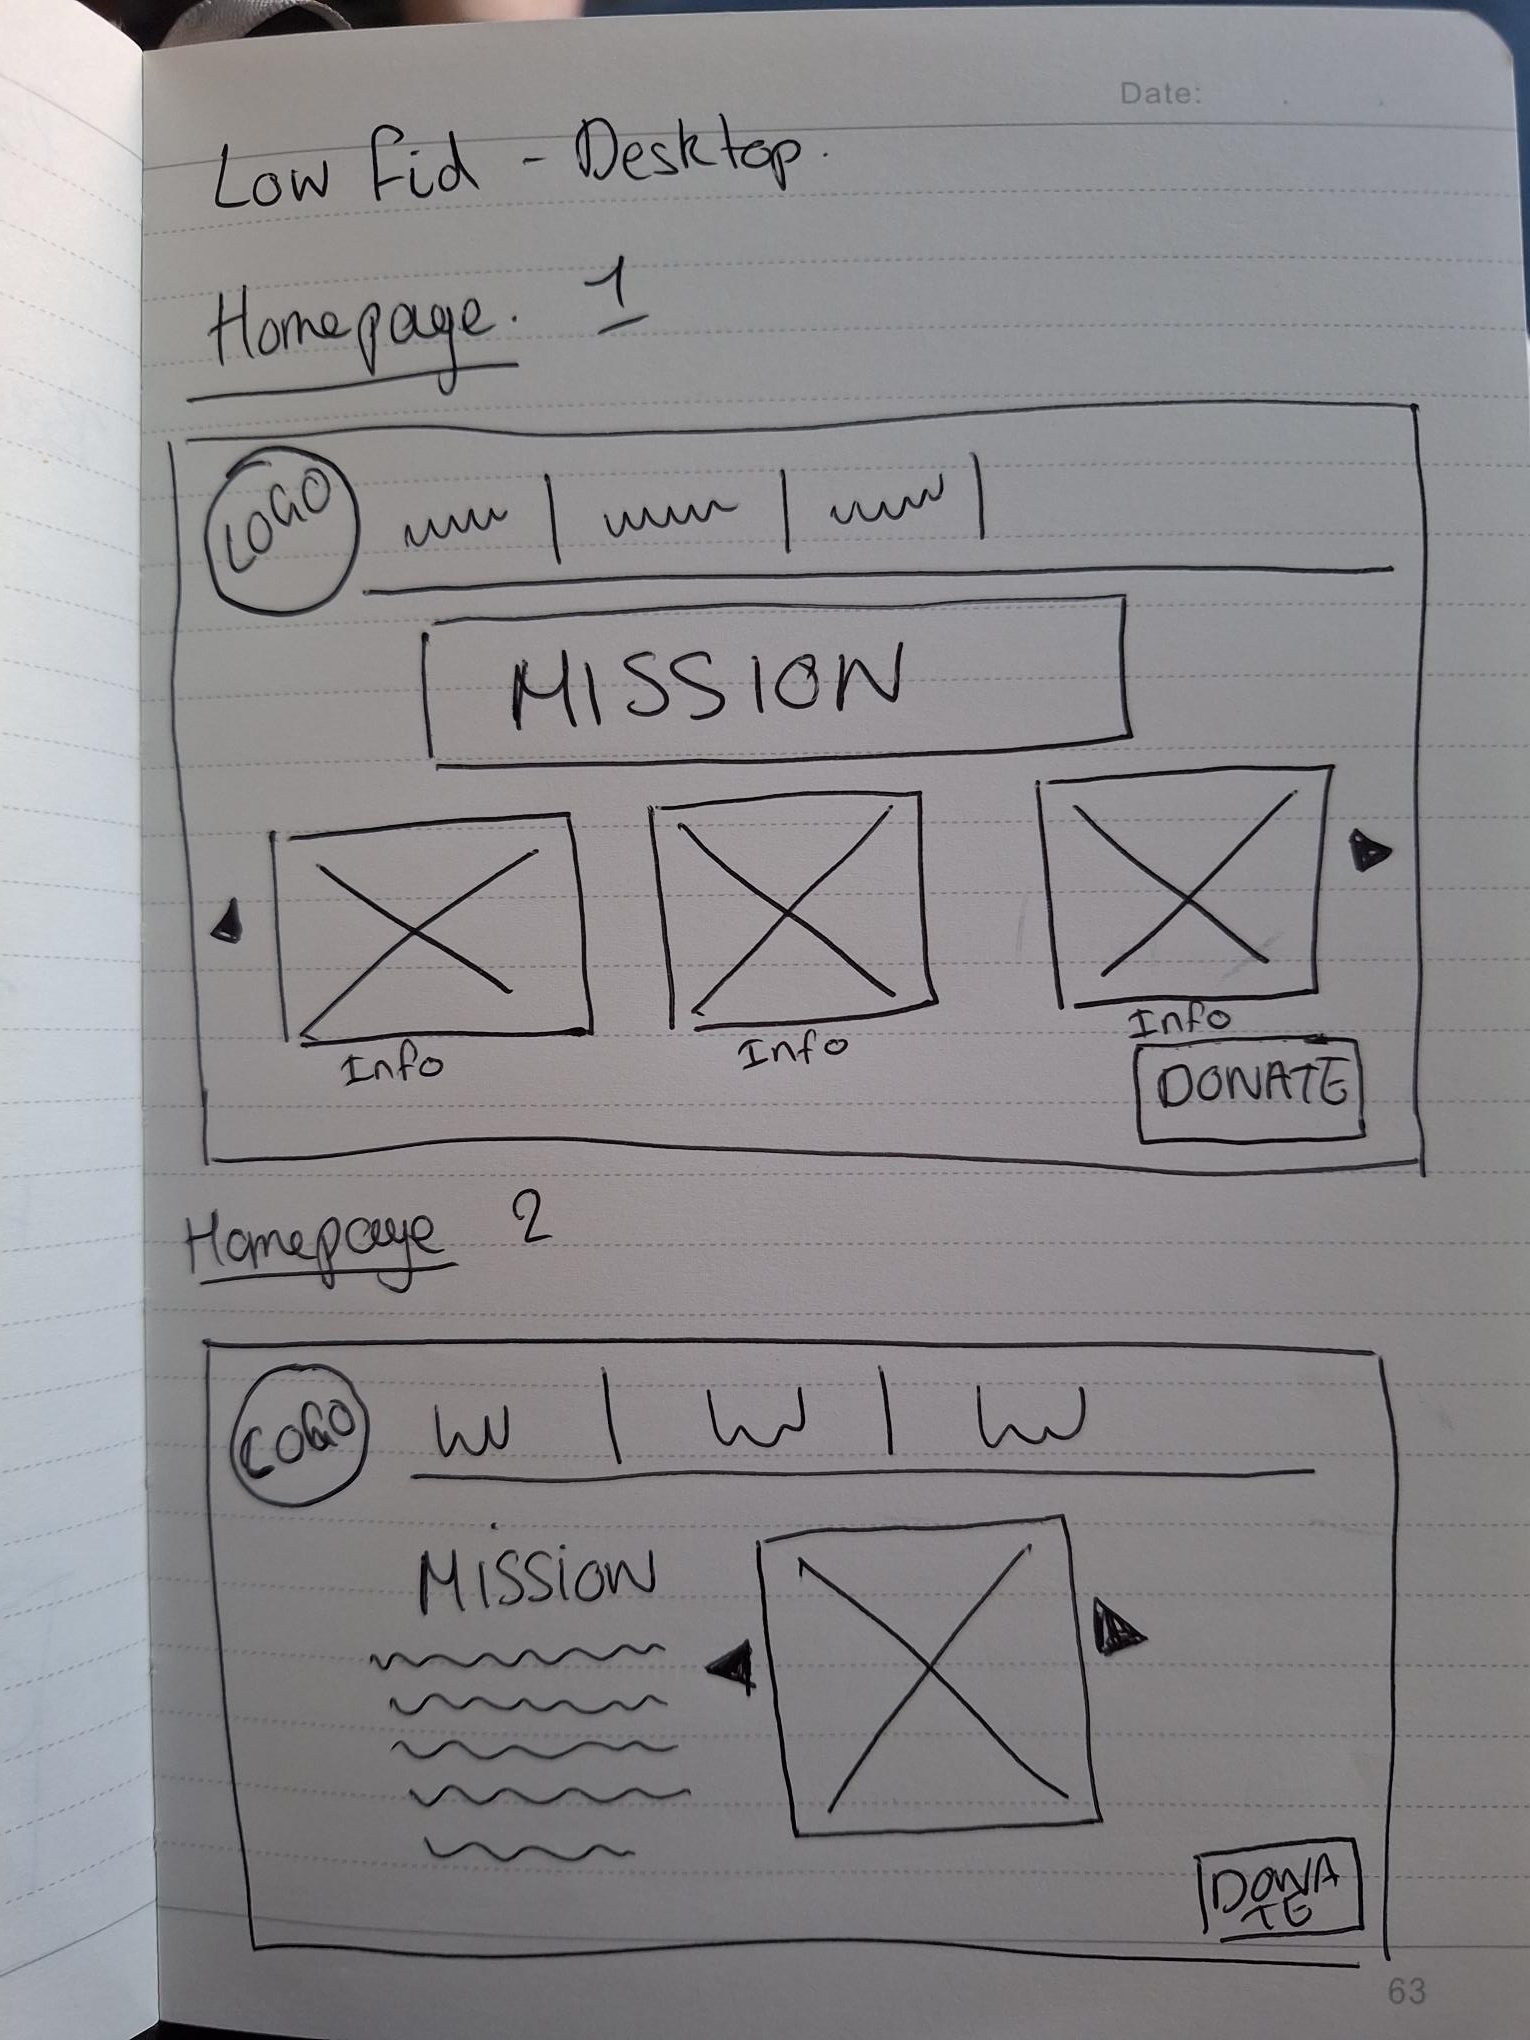 Date:
Low Fid - Desktop.
Homepage. 1
LOGO
MISSION
Info Info Info
DONATE
Homepage 2
LOGO
MISSION
DONA
TE
63